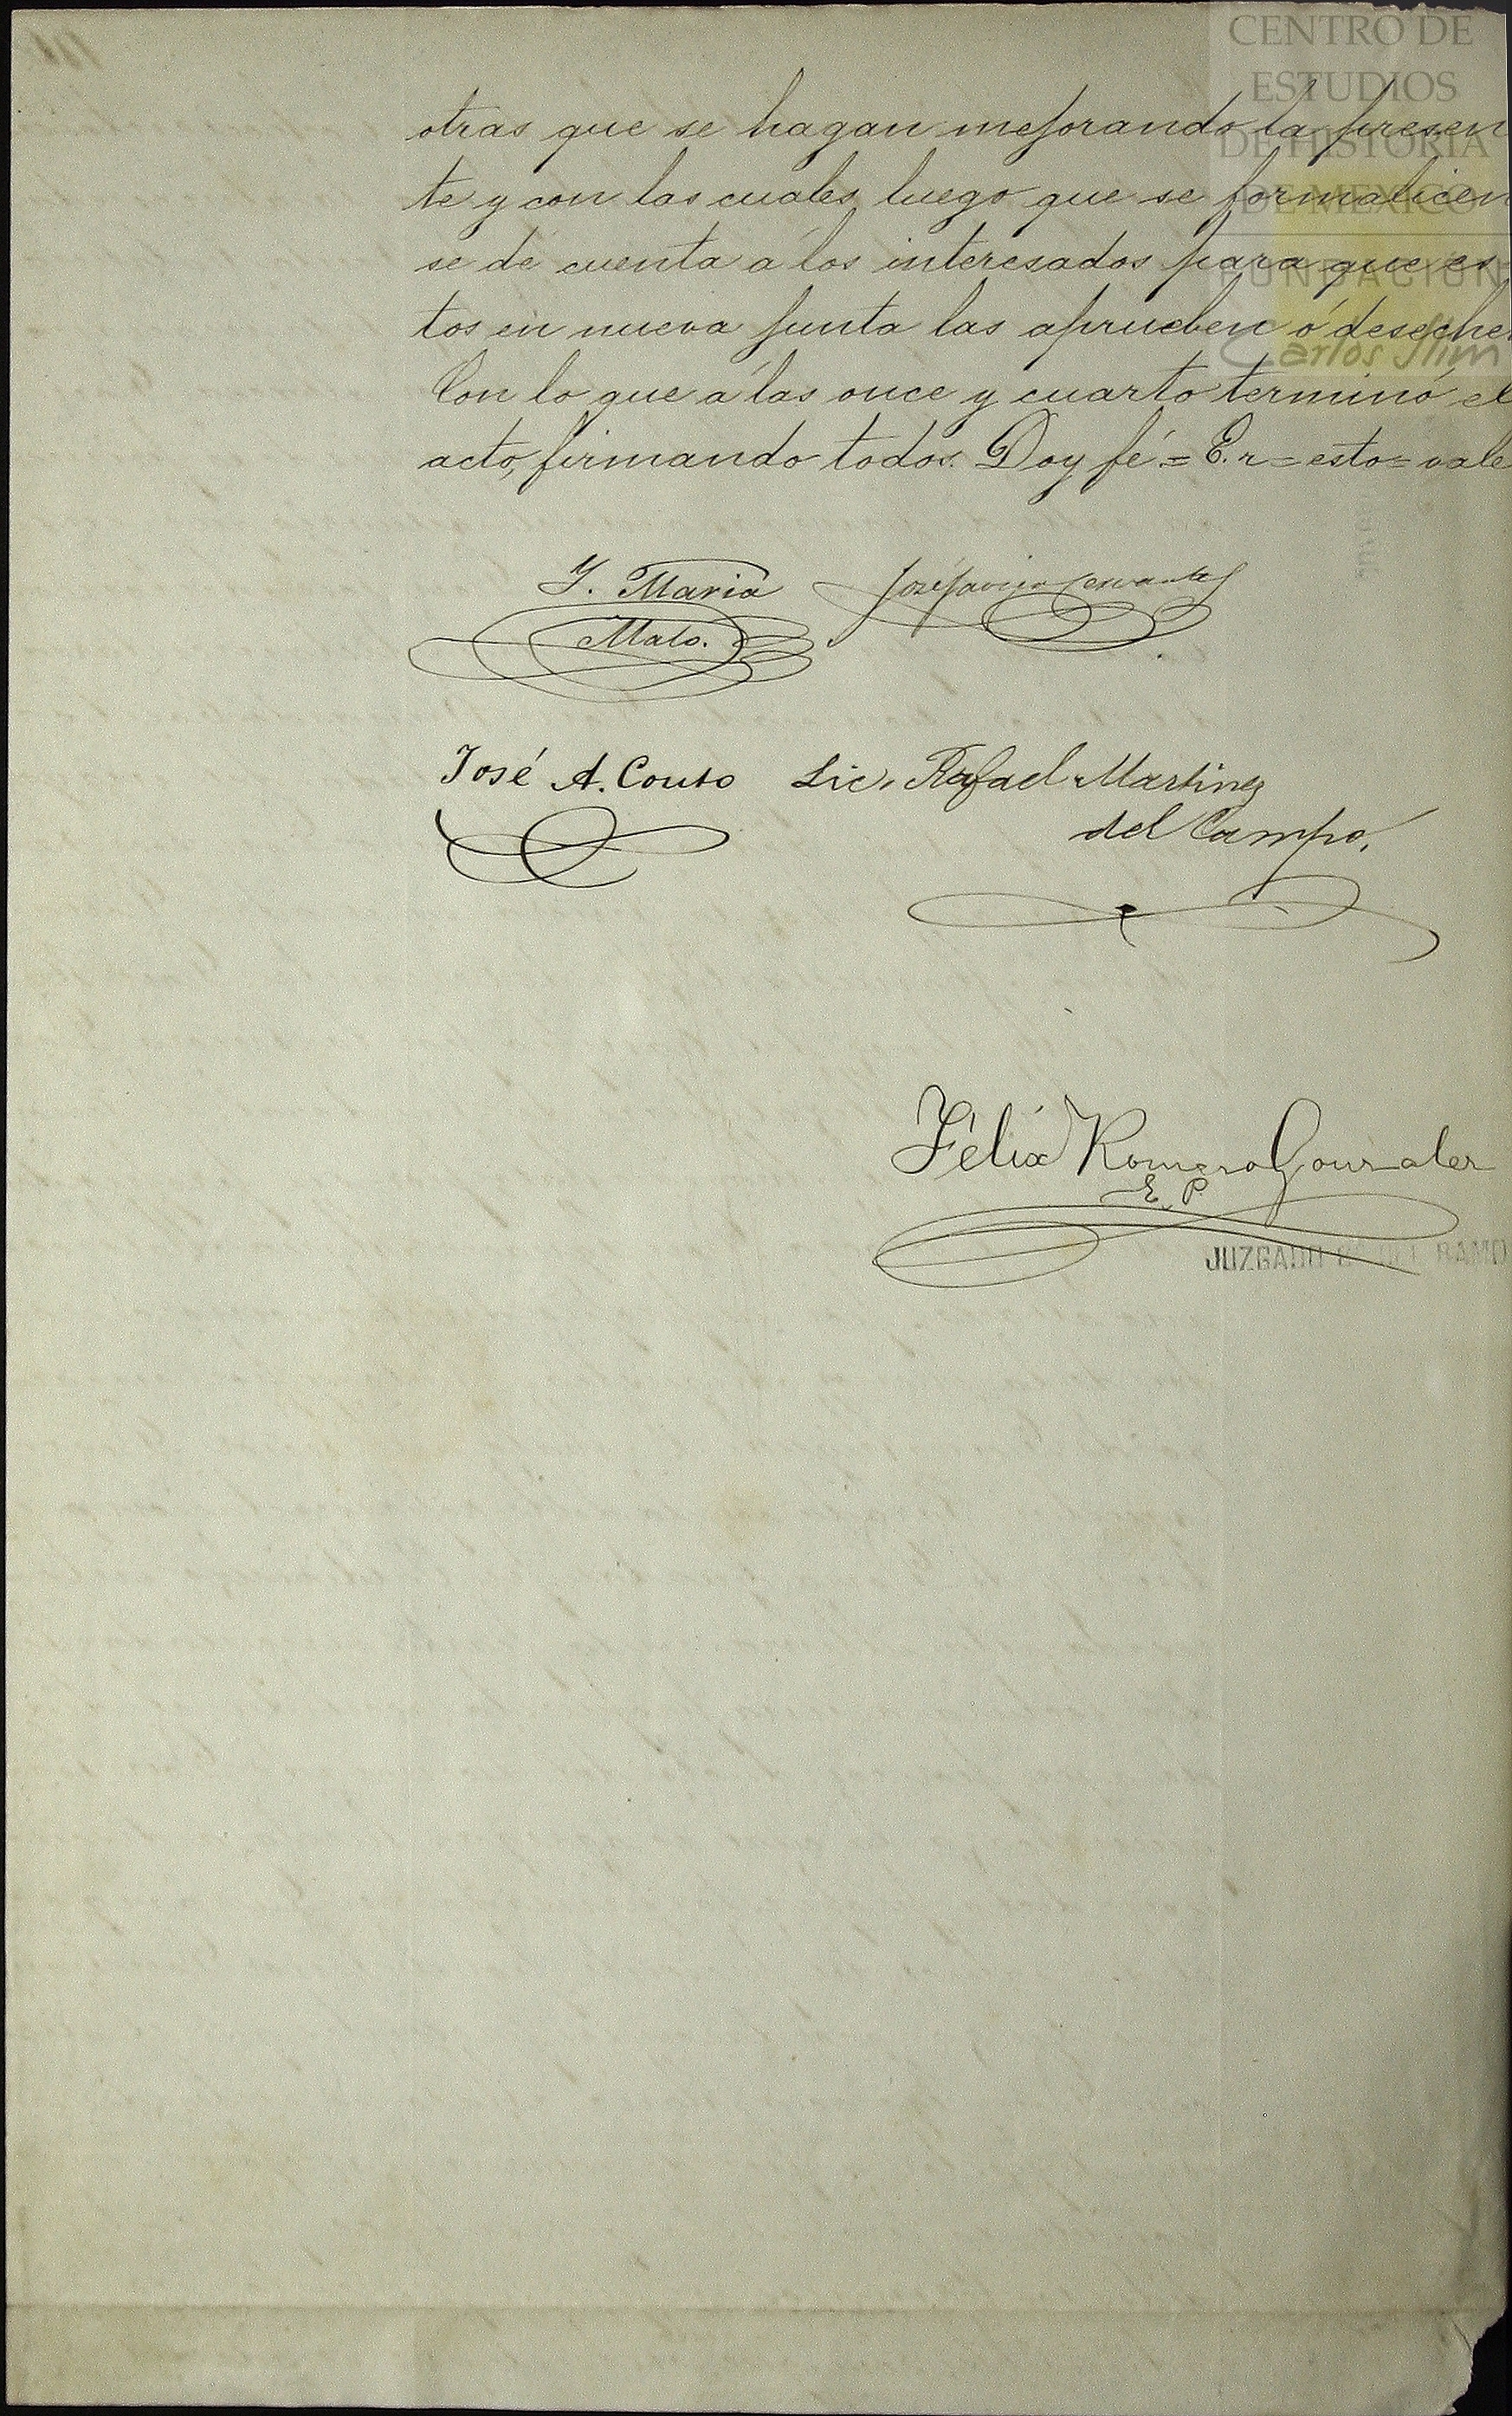 CENTRO DE
ESTUDIOS
DE HISTORIA
DE MEXICO
FUNDACION
Carlos Slim
otras que se hagan mejorando la presen
te y con las cuales, luego que se formalicen
se dé cuenta á los interesados para que es
tos en nueva junta las aprueben ó desechen
Con lo que á las once y cuarto terminó el
acto, firmando todos. Doy fé.= E. r = esto = vale
Y. Maria
Malo.
José Javier Cervantes
José A. Couto
Lic. Rafael Martinez
del Campo.
Félix Romero Gonzalez
E. P
JUZGADO DEL RAMO